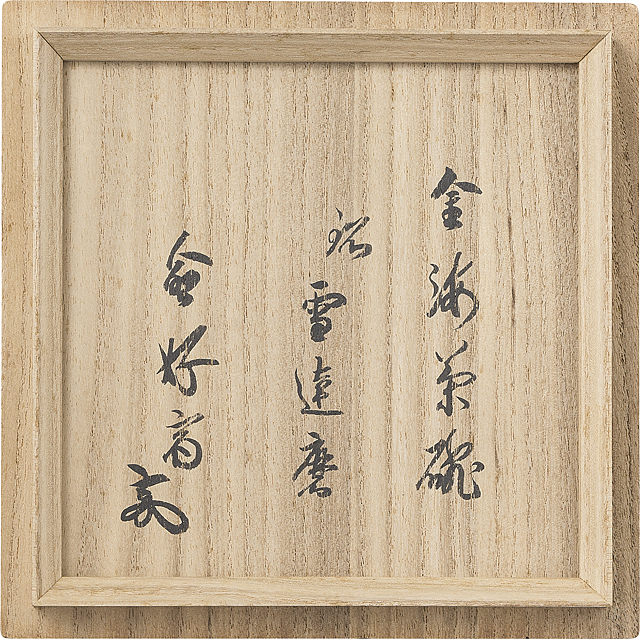 金海茶碗
銘
雪達磨
愈好斎